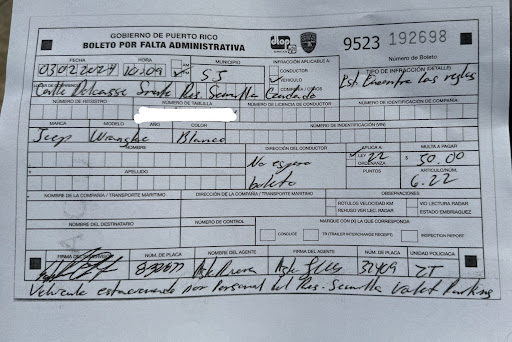 GOBIERNO DE PUERTO RICO
BOLETO POR FALTA ADMINISTRATIVA
dtop
9523 192698
Número de Boleto
FECHA HORA AM PM MUNICIPIO INFRACCIÓN APLICABLE A:
03 02 2024 10:09 SJ
CONDUCTOR
VEHÍCULO
COMPAÑÍA / OTROS
TIPO DE INFRACCIÓN (DETALLE)
Est. Encontra las reglas
LUGAR DE OCURRENCIA
Calle Res. Semilla Condado
NÚMERO DE REGISTRO NÚMERO DE TABLILLA NÚMERO DE LICENCIA DE CONDUCTOR NÚMERO DE IDENTIFICACIÓN DE COMPAÑÍA
MARCA MODELO AÑO COLOR NÚMERO DE INDENTIFICACIÓN (MN)
Jeep Blanco
NOMBRE DIRECCIÓN DEL CONDUCTOR APLICA MULTA A PAGAR
No espero LEY 22 $ 50.00
ORDENANZA
APELLIDO PUNTOS ARTICULO/NUM.
boleto 6.22
NOMBRE DE LA COMPAÑÍA / TRANSPORTE MARITIMO DIRECCIÓN DE LA COMPAÑÍA / TRANSPORTE MARITIMO OBSERVACIONES
ROTULOS VELOCIDAD KM VIO LECTURA RADAR
REHUSO VER LEC. RADAR ESTADO EMBRIAGUEZ
NOMBRE DEL DESTINATARIO NÚMERO DE CONTROL MARQUE CON (X) LA QUE CORRESPONDA
CONDUCE TR (TRAILER INTERCHANGE RECEIPT) INSPECCIÓN
FIRMA DEL NÚM. DE PLACA NOMBRE DEL AGENTE FIRMA DEL AGENTE NÚM. DE PLACA UNIDAD POLICIACA
Vehiculo estacionado por Personal del Res. Semilla Valet Parking